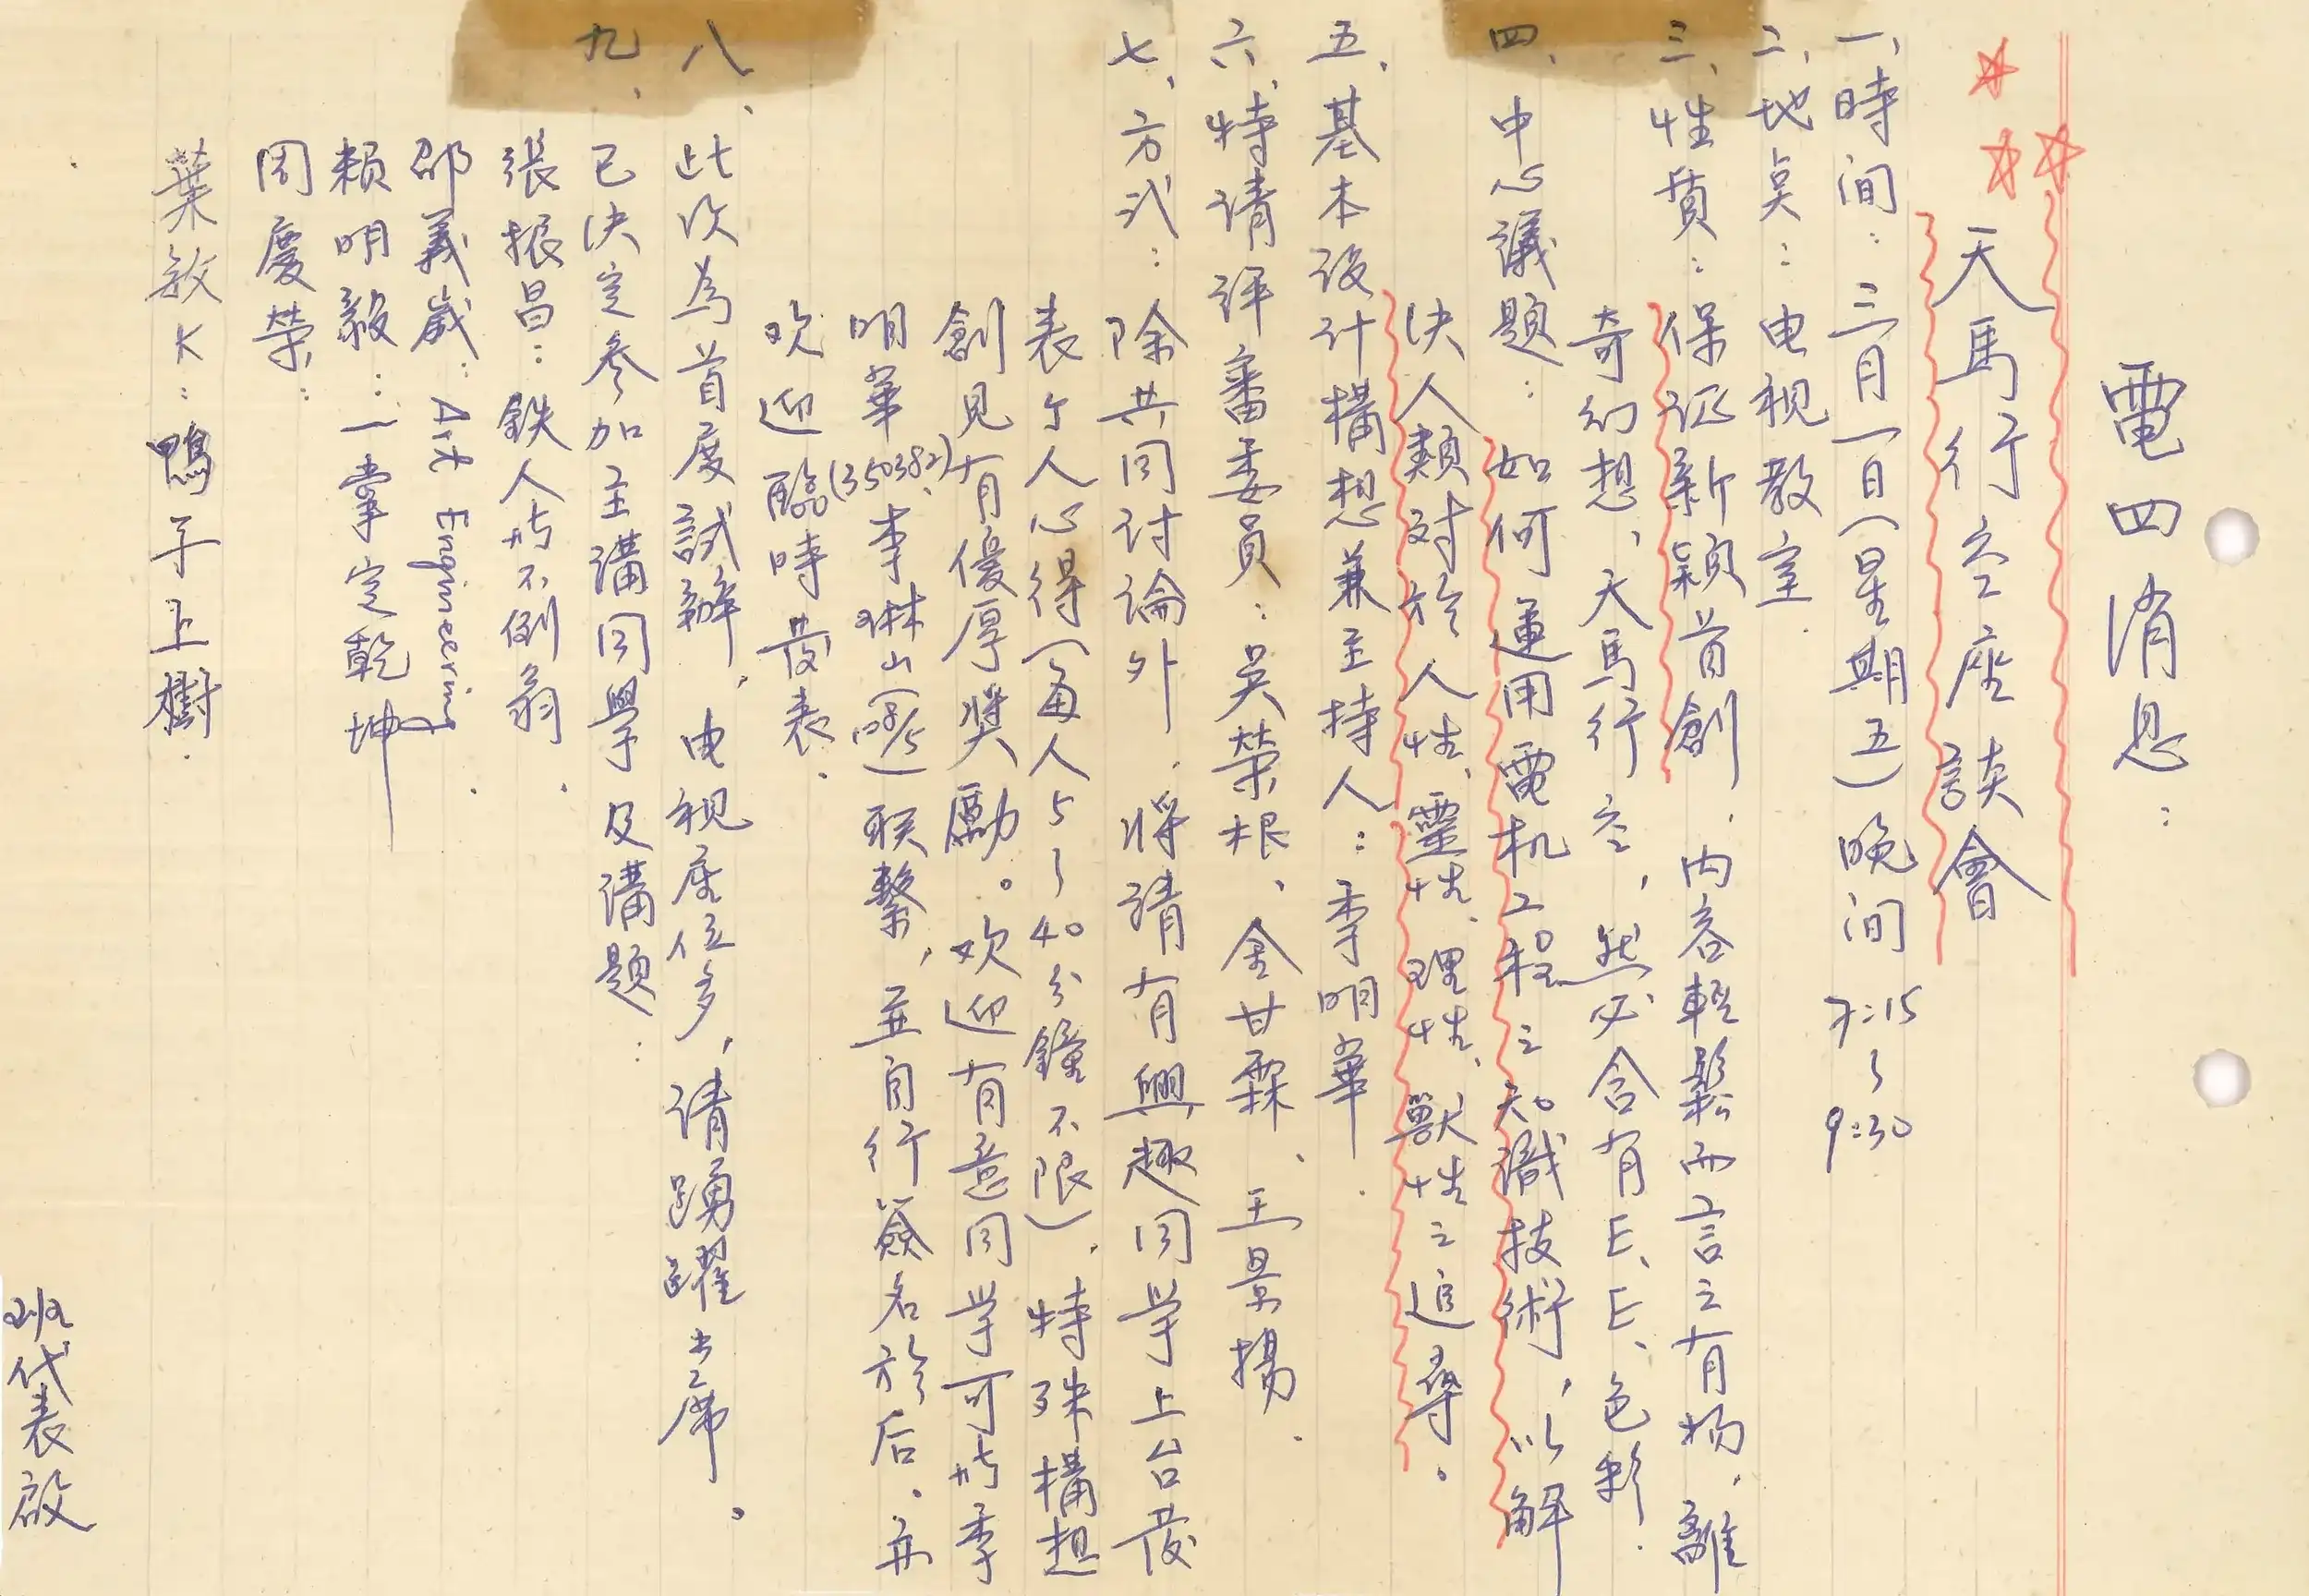 電四消息：
天馬行空座談會
一、時间：三月一日（星期五）晚间 7:15～9:30
二、地奌：电视教室.
三、性質：保证新穎首創．内容輕鬆而言之有物，離
奇幻想、天馬行空，然必含有E、E、色彩．
四、中心議題：如何運用電机工程之知識技術，以解
决人類对於人性、靈性、理性、獸性之追尋。
五、基本设计構想兼主持人：李明華．
六、特请评審委員：吳榮根、金甘霖、王景揚．
七、方式：除共同讨論外．將请有興趣同学上台发
表个人心得（每人5～40分鐘不限），特殊構想
創見有優厚獎勵。欢迎有意同学可與李
明華(350382)、李琳山(108/5)联繫，並自行簽名於后．并
欢迎臨時发表．
八、此次為首度試辦，电视座位多，请踴躍出席。
九、已决定参加主講同學及講題：
張振昌：鉄人與不倒翁．
邵義崴：Art Engineering．
賴明毅：一掌定乾坤
周慶榮：
葉敏K：鴨子上樹．
班代表啟